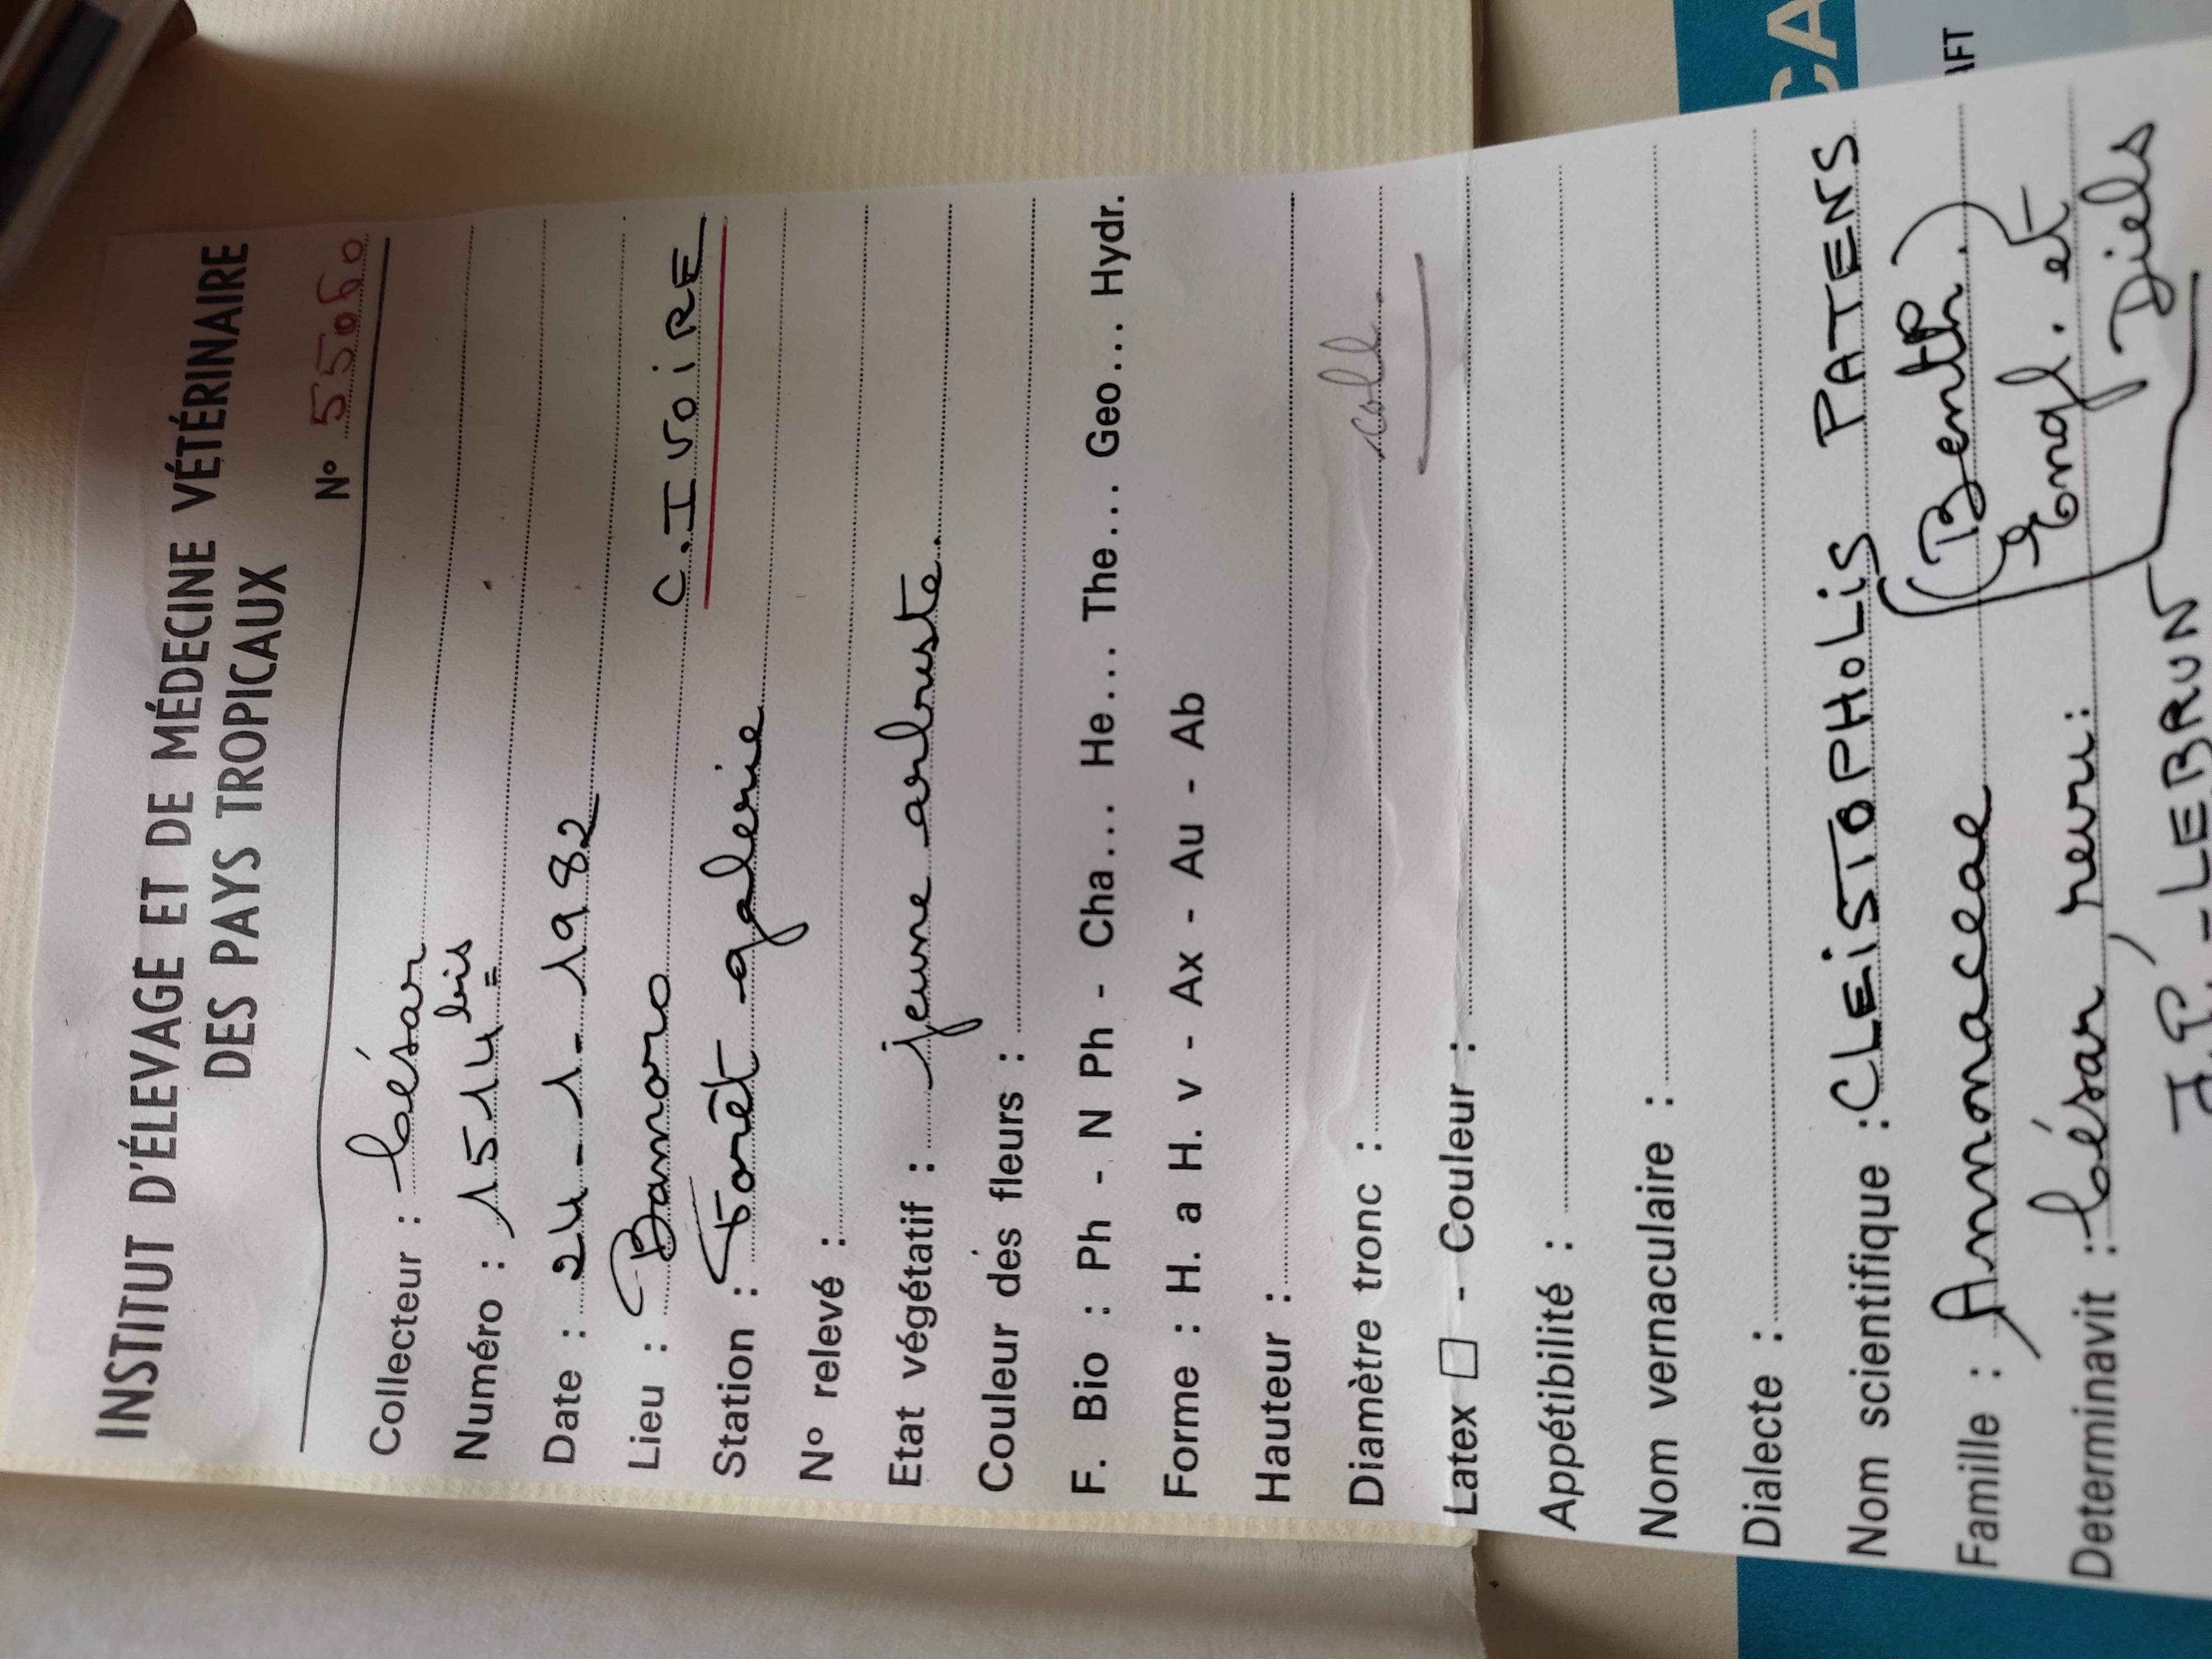 INSTITUT D'ÉLEVAGE ET DE MÉDECINE VÉTÉRINAIRE
DES PAYS TROPICAUX
N° 5506
Collecteur : César
Numéro : 1514 bis
Date : 24-1-1982
Lieu : Bamoro C. IVOIRE
Station : Forêt galerie
N° relevé :
Etat végétatif : jeune arbuste.
Couleur des fleurs :
F. Bio : Ph - N Ph - Cha... He... The... Geo... Hydr.
Forme : H. a H. v - Ax - Au - Ab
Hauteur :
Diamètre tronc : coll.
Latex □ - Couleur :
Appétibilité :
Nom vernaculaire :
Dialecte :
Nom scientifique : CLEISTOPHOLIS PATENS
(Benth.)
Famille : Annonaceae Engl. et
Diels
Determinavit : César revu :
J.P. LEBRUN
CA
AFT